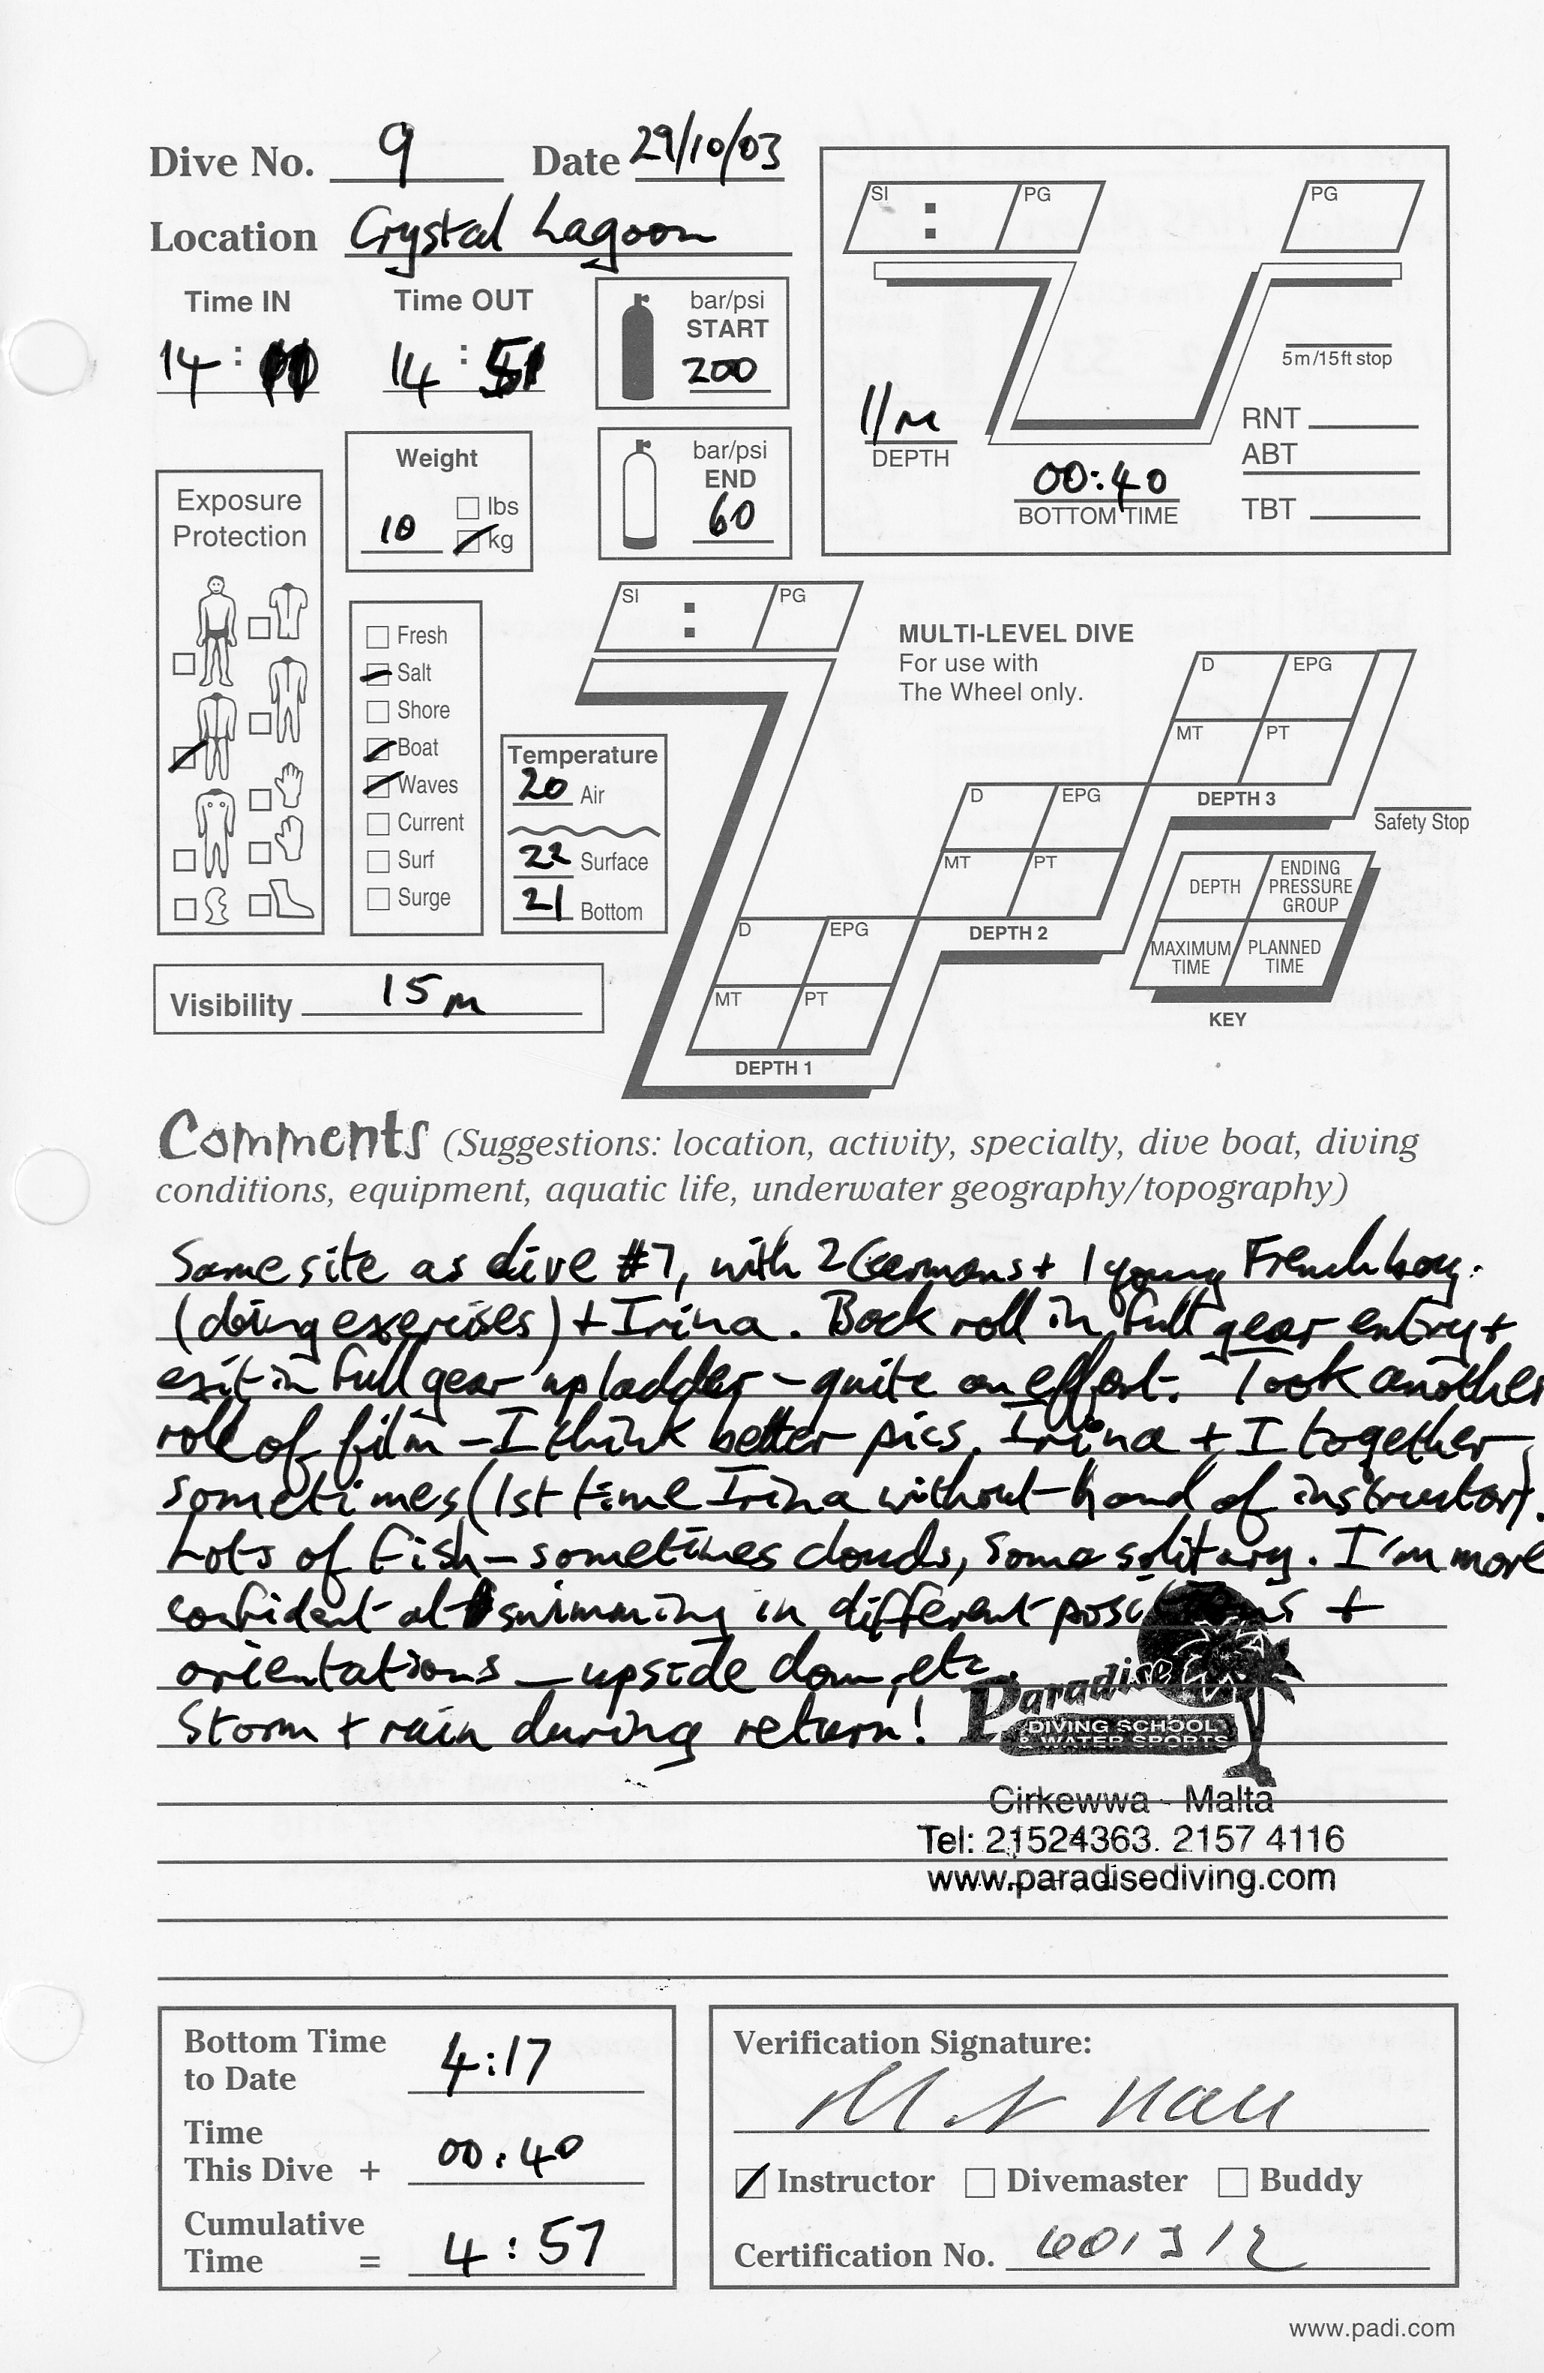 Dive No. 9 Date 29/10/03
Location Crystal Lagoon
Time IN Time OUT
14 : 14 : 51
bar/psi
START
200
bar/psi
END
60
Weight
10 lbs
kg
Exposure
Protection
Fresh
Salt
Shore
Boat
Waves
Current
Surf
Surge
Temperature
20 Air
22 Surface
21 Bottom
Visibility 15m
SI : PG PG
5m/15ft stop
11m
DEPTH
00:40
BOTTOM TIME
RNT
ABT
TBT
SI : PG
MULTI-LEVEL DIVE
For use with
The Wheel only.
D EPG
MT PT
DEPTH 3
D EPG
MT PT
DEPTH 2
D EPG
MT PT
DEPTH 1
Safety Stop
DEPTH ENDING PRESSURE GROUP
MAXIMUM TIME PLANNED TIME
KEY
Comments (Suggestions: location, activity, specialty, dive boat, diving
conditions, equipment, aquatic life, underwater geography/topography)
Same site as dive #7, with 2 Germans + 1 young French boy.
(doing exercises) + Irina. Back roll in full gear entry +
exit in full gear up ladder - quite an effort. Took another
roll of film - I think better pics. Irina + I together
sometimes (1st time Irina without hand of instructor).
Lots of fish - sometimes clouds, some solitary. I'm more
confident at swimming in different positions +
orientations - upside down, etc.
Storm + rain during return!
Paradise
DIVING SCHOOL
& WATER SPORTS
Cirkewwa - Malta
Tel: 21524363. 2157 4116
www.paradisediving.com
Bottom Time
to Date 4:17
Time
This Dive + 00:40
Cumulative
Time = 4:57
Verification Signature:
Instructor Divemaster Buddy
Certification No. 601312
www.padi.com